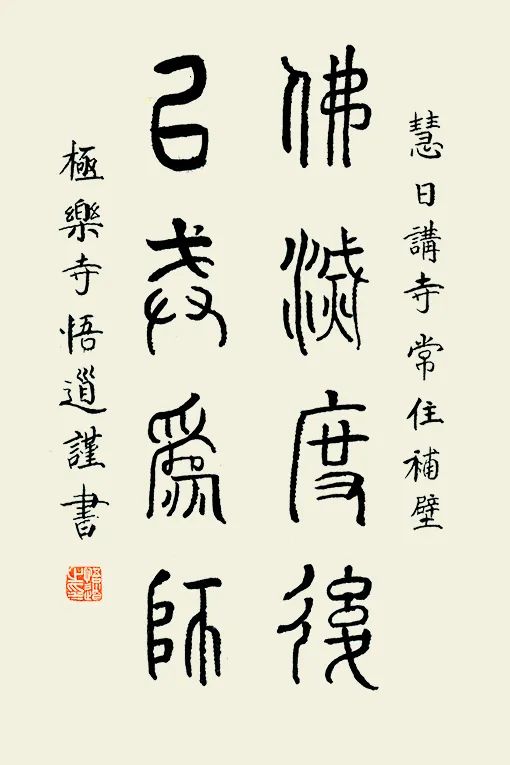 慧日講寺常住補壁
佛滅度後
以戒為師
極樂寺悟道謹書